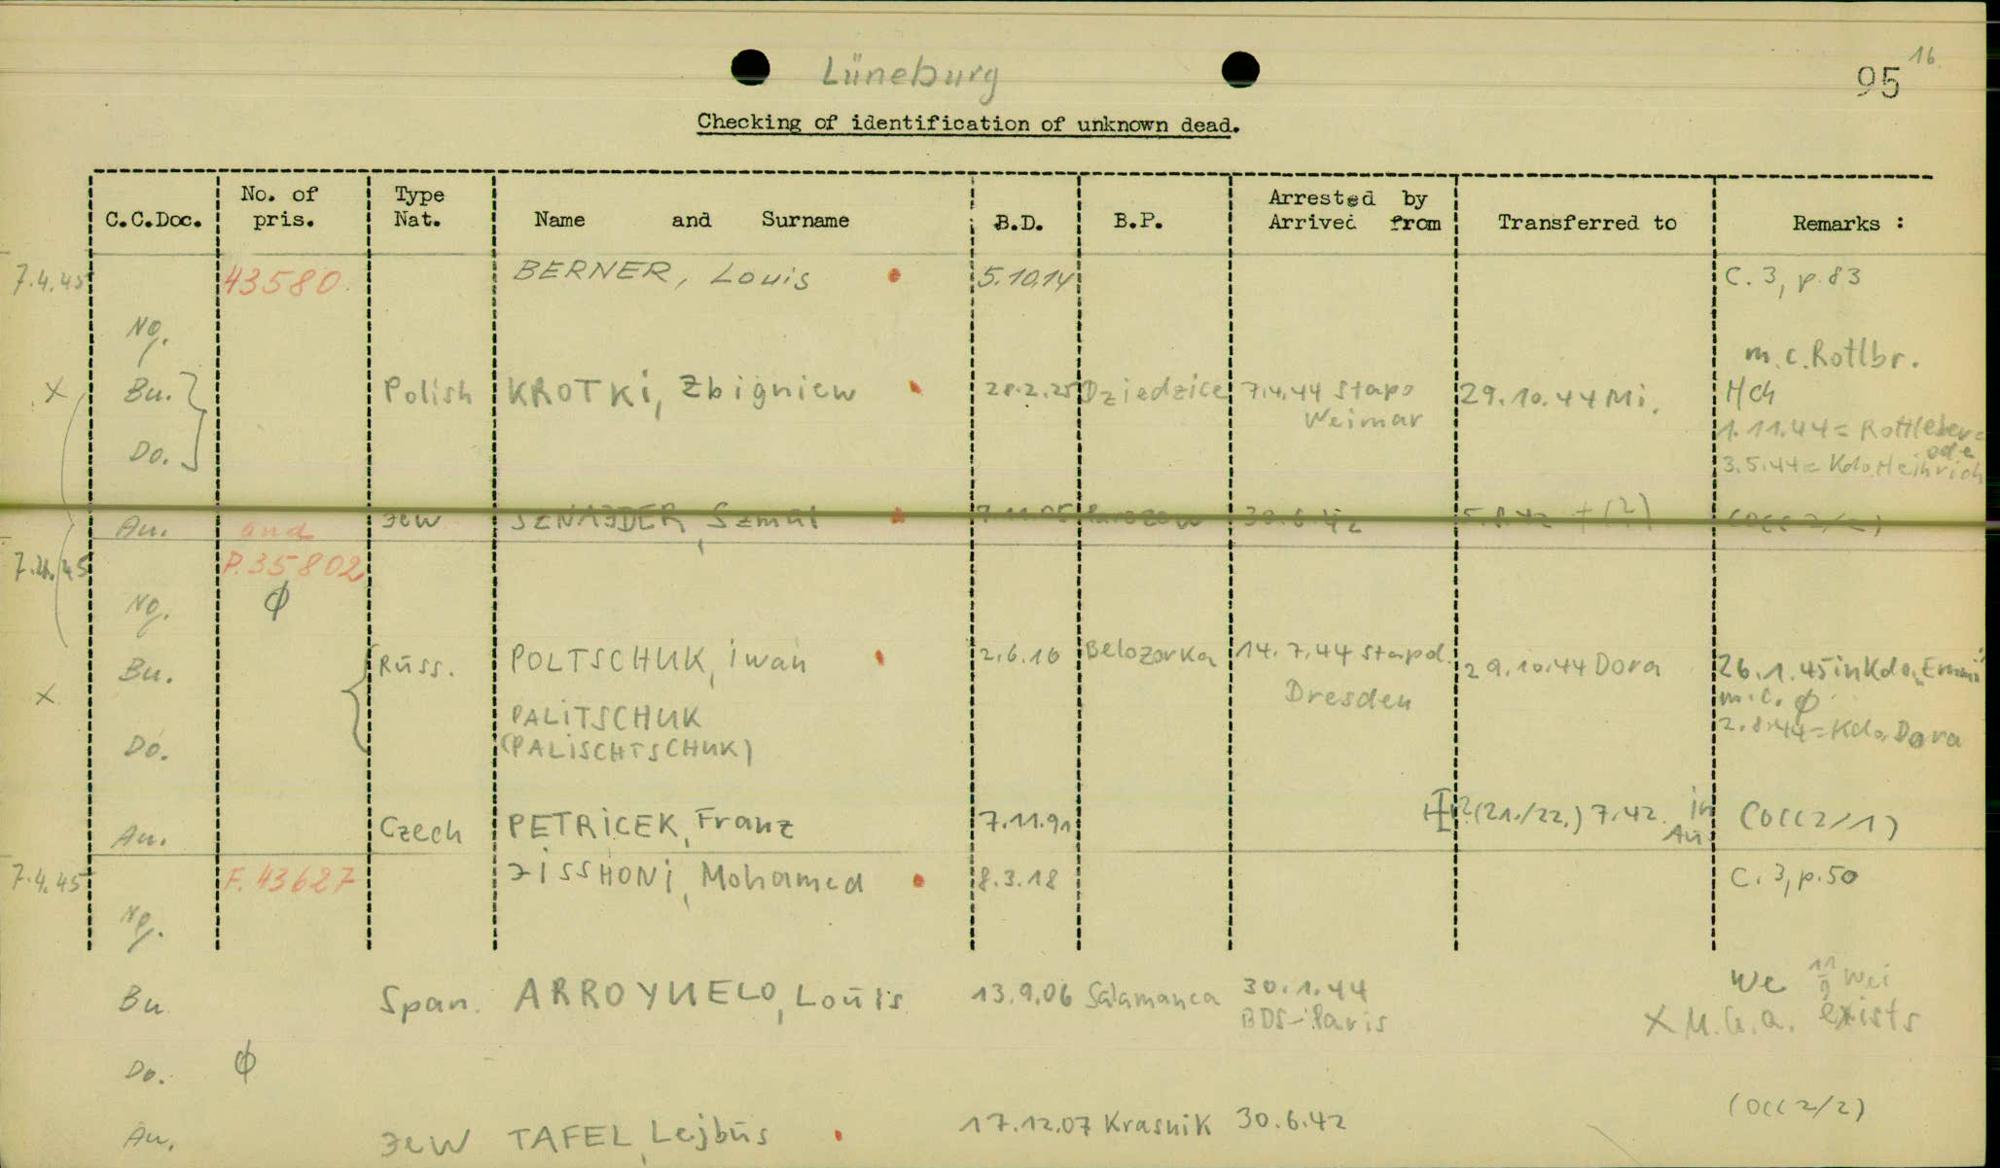 16.
Lüneburg
95
Checking of identification of unknown dead.
C.C.Doc. No. of pris. Type Nat. Name and Surname B.D. B.P. Arrested by Arrived from Transferred to Remarks :
7.4.45 43580. BERNER, Louis 5.10.14 C. 3, p. 83
Ng.
m.c. Rotlbr.
X Bu. Polish KROTKi, Zbigniew 28.2.25 Dziedzice 7.4.44 Stapo Weimar 29.10.44 Mi. Hch
1.11.44 = Rottleberode
Do. 3.5.44 = Kdo. Heinrich
Au. and Jew SZNAJDER, Szmul 30.6.42
7.4.45 P.35802
Ng. ϕ
Bu. Russ. POLTSCHUK, iwan 2.6.16 Belozorka 14.7.44 Stapol. Dresden 29.10.44 Dora 26.1.45 in Kdo.
X PALiTSCHUK m.c. ϕ
Do. (PALiSCHTSCHUK) 2.8.44 = Kdo. Dora
Au. Czech PETRiCEK, Franz 7.11.91 ? (21./22.) 7.42 in Au. (OCC 2/1)
7.4.45 F. 43627 ZiSSHONi, Mohamed 8.3.18 C. 3, p. 50
Ng.
Bu Span. ARROYUELO, Louis 13.9.06 Salamanca 30.1.44 BDS-Paris We 11/9 Wei
X M.G.a. exists
Do. ϕ
Au. Jew TAFEL, Lejbus 17.12.07 Krasnik 30.6.42 (OCC 2/2)